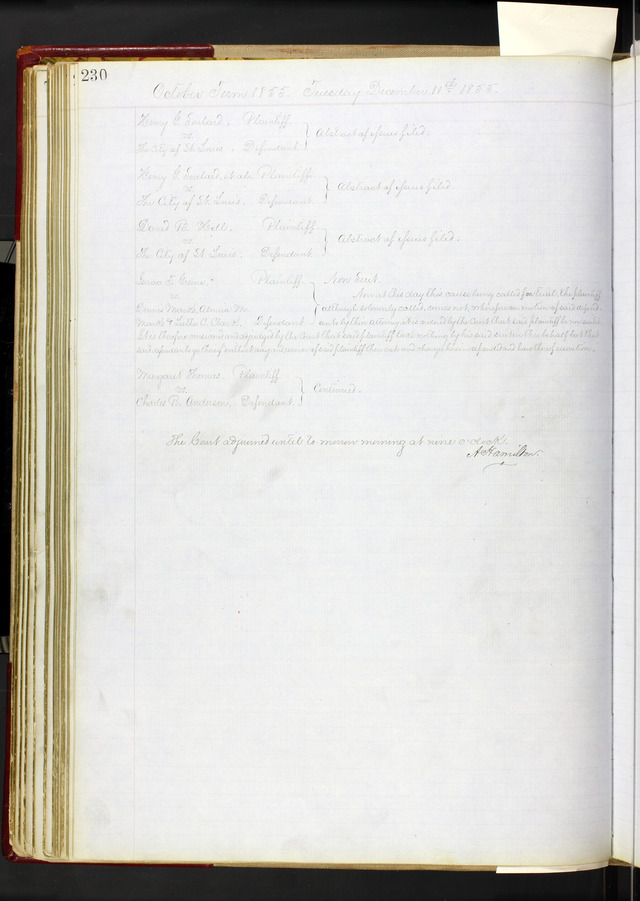 230
October Term 1855 Tuesday December 11th 1855
Henry C. Plaintiff
vs. } Abstract of issues filed.
The City of St. Louis. Defendant
Henry et als Plaintiffs
vs. } Abstract of issues filed.
The City of St. Louis. Defendant
David Plaintiff
vs. } Abstract of issues filed.
The City of St. Louis. Defendant
Plaintiff Non Suit.
vs. Now at this day this cause being called for trial, the plaintiff
Dennis Marks, M. although solemnly called, comes not, wherefore on motion of said defend-
Marks & Luther C. Clark, Defendant ants by their attorney it is ordered by the Court that said plaintiff be non suited
It is therefore considered and adjudged by the Court that said plaintiff take nothing by his said suit in this behalf but that
said defendants go thereof without day and recover of said plaintiff their costs and charges herein expended and have therefor execution.
Margaret Thomas. Plaintiff
vs. } Continued.
Charles R. Anderson. Defendant.
The Court adjourned until to morrow morning at nine o'clock.
A Hamilton.